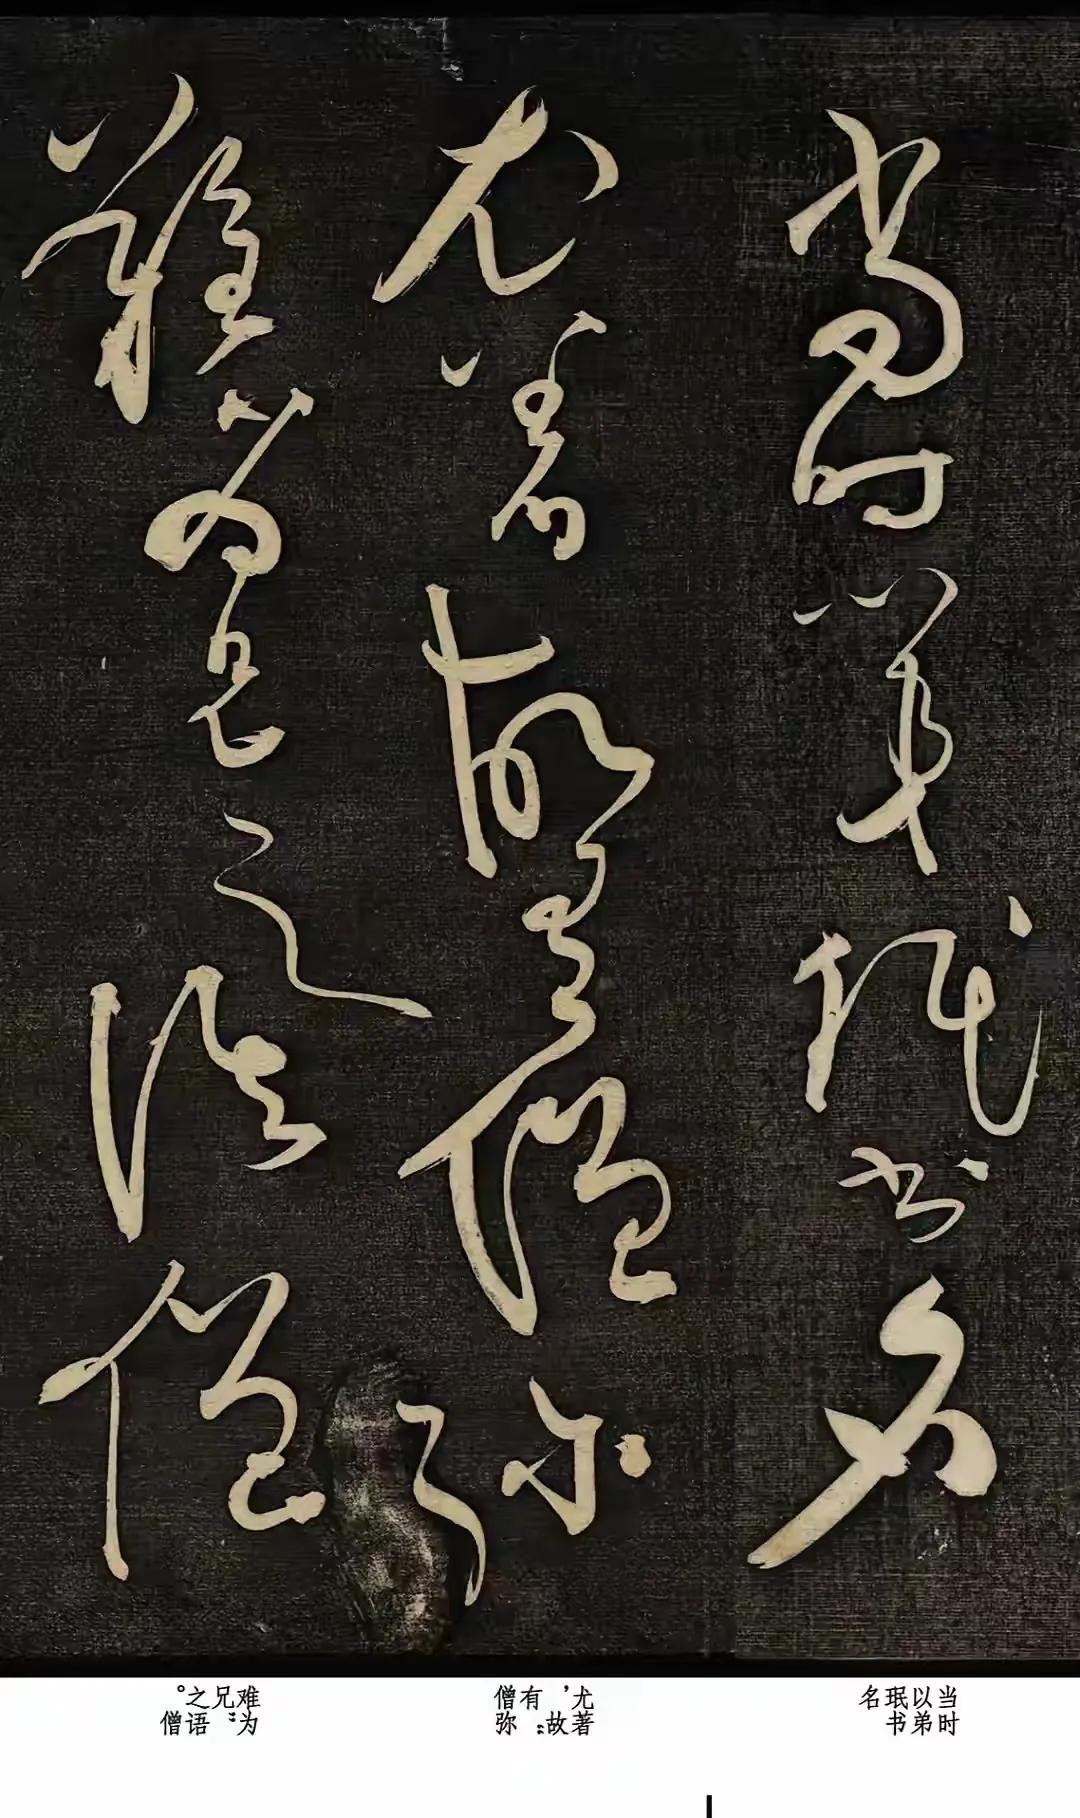 當時以弟珉書名
尤著故有僧弥
難為兄之語僧
当时以弟珉书名
尤著，故有“僧弥
难为兄”之语。僧